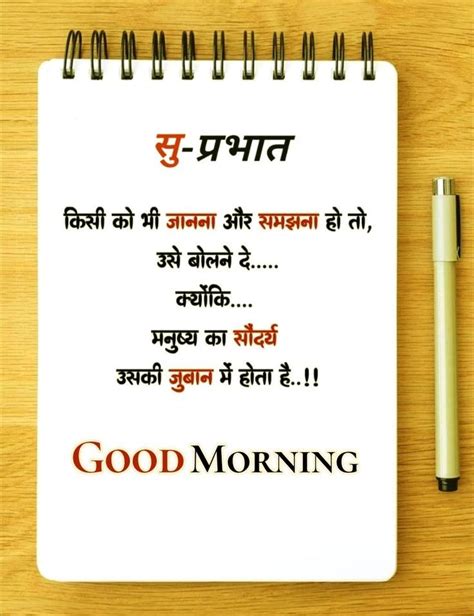 सु-प्रभात
किसी को भी जानना और समझना हो तो,
उसे बोलने दे.....
क्योंकि....
मनुष्य का सौदर्य
उसकी जुबान में होता है..!!
GOOD MORNING